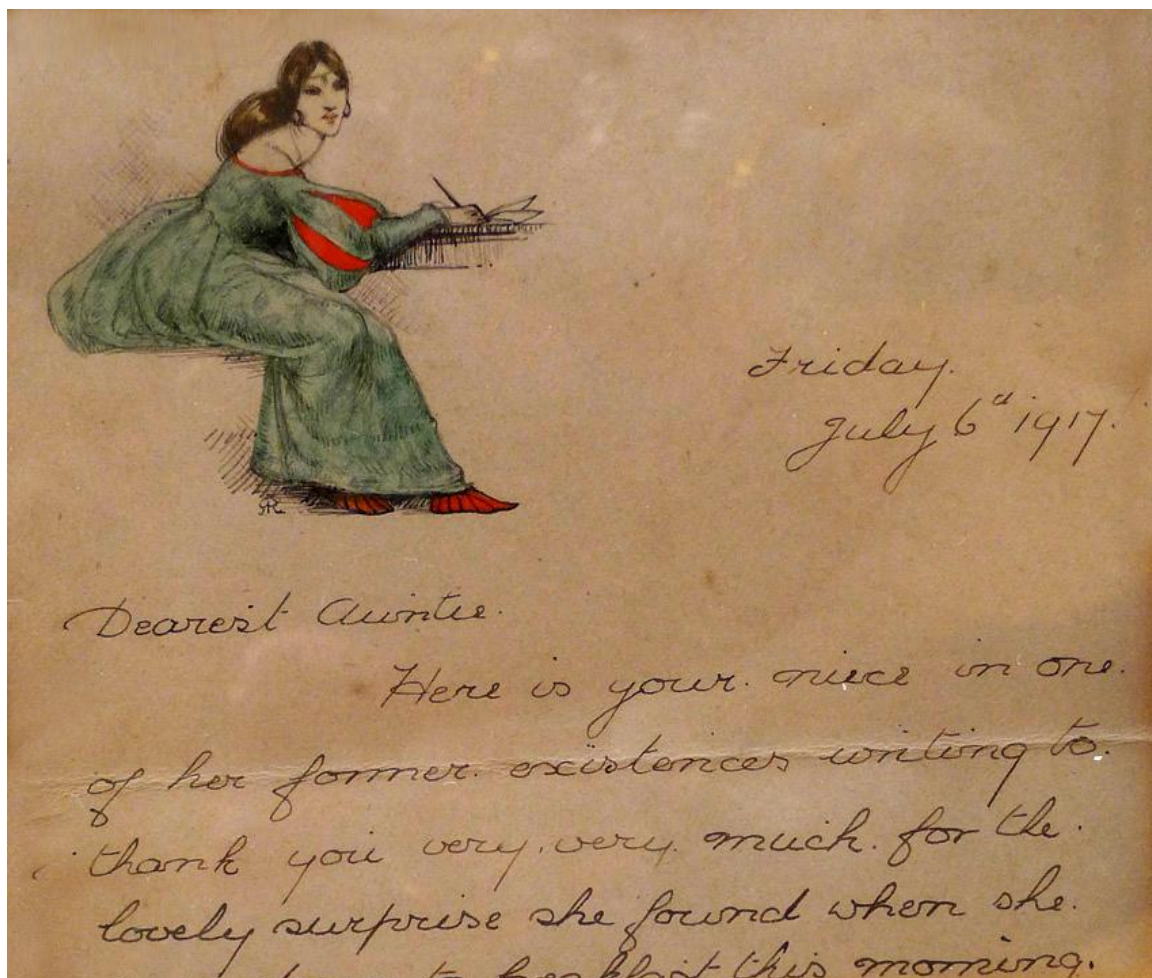 Friday.
July 6th 1917.
Dearest Auntie.
Here is your niece in one.
of her former existences writing to.
thank you very, very much for the.
lovely surprise she found when she.
to breakfast this morning.